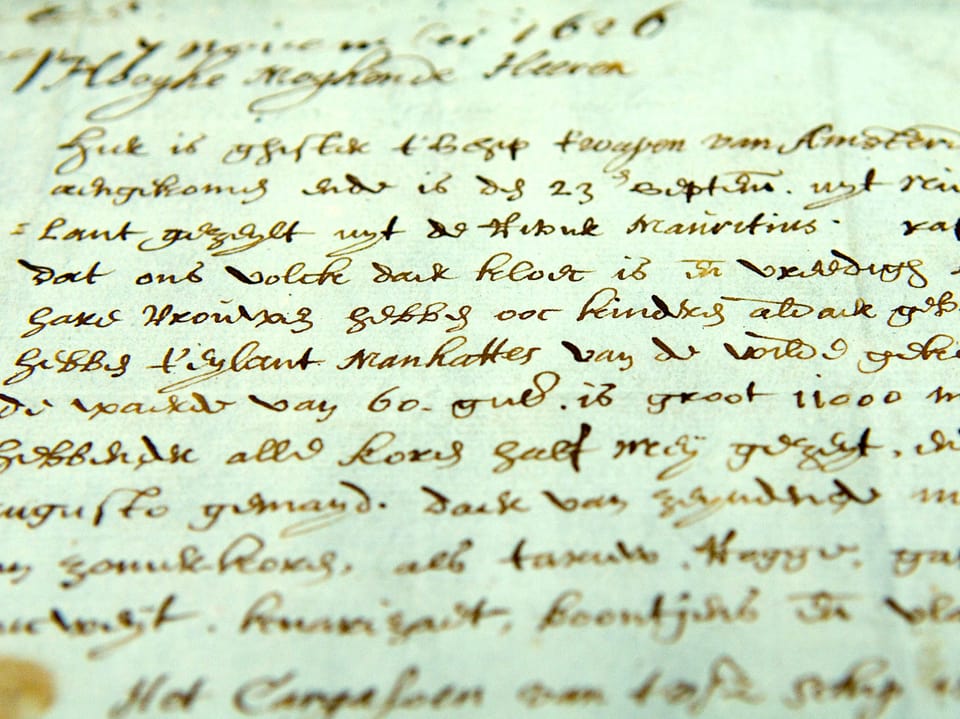 7 november 1626
Hooghe Moghende Heeren
Hier is ghister t'Schip t'wapen van Amsterd
aengekomen ende is den 23en Septem. uyt Nieu
Lant gezeylt uyt de Rivier Mauritius. rap
dat ons volck daer kloec is en vreedigh
hare Vrouwen hebben ooc kinders aldaer geb
hebben t'eylant Manhattes van de wilde geko
de waerde van 60. guld. is groot 11000 m
hebbende alle koren half Mey gezeyt, en
augusto gemayd. daer van zeyndende m
zomerkoren, als taruw, Rogge, ga
weyt. kenarizaet, boontjens en vla
Het Cargasoen van tvsz schip is